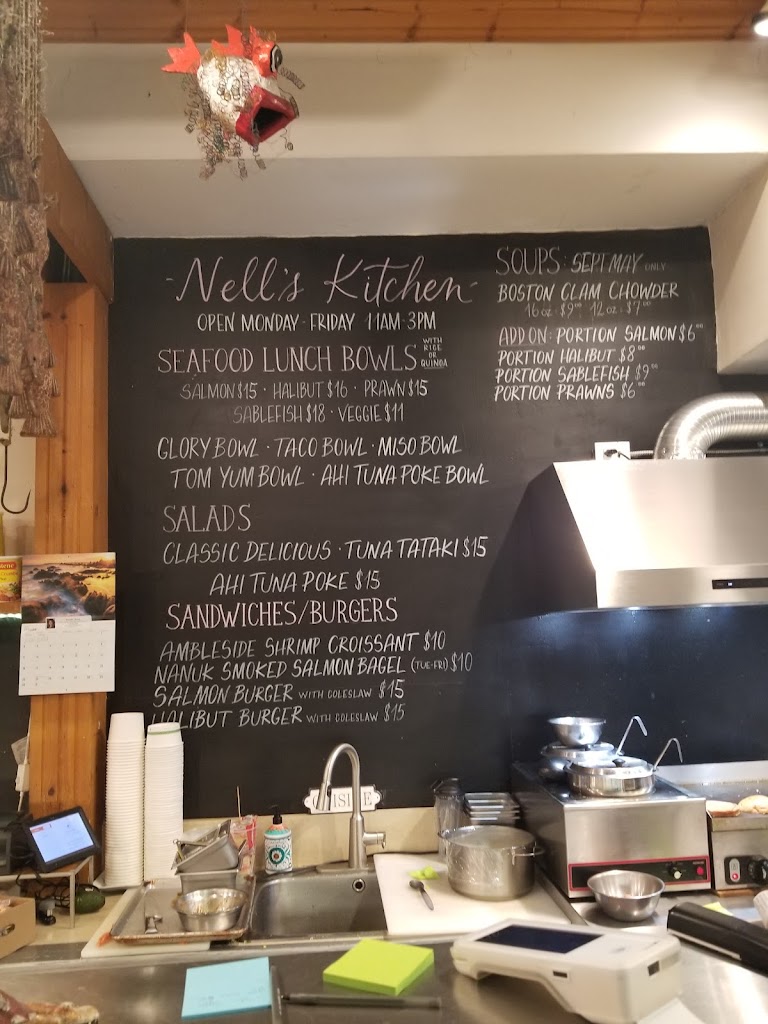 - Nell's Kitchen -
OPEN MONDAY - FRIDAY 11AM-3PM
SEAFOOD LUNCH BOWLS WITH RICE OR QUINOA
SALMON $15 · HALIBUT $16 · PRAWN $15
SABLEFISH $18 · VEGGIE $11
GLORY BOWL · TACO BOWL · MISO BOWL
TOM YUM BOWL · AHI TUNA POKE BOWL
SALADS
CLASSIC DELICIOUS · TUNA TATAKI $15
AHI TUNA POKE $15
SANDWICHES/BURGERS
AMBLESIDE SHRIMP CROISSANT $10
NANUK SMOKED SALMON BAGEL (TUE-FRI) $10
SALMON BURGER WITH COLESLAW $15
HALIBUT BURGER WITH COLESLAW $15
SOUPS: SEPT MAY ONLY
BOSTON CLAM CHOWDER
16 oz - $9.00 12 oz - $7.00
ADD ON: PORTION SALMON $6.00
PORTION HALIBUT $8.00
PORTION SABLEFISH $9.00
PORTION PRAWNS $6.00